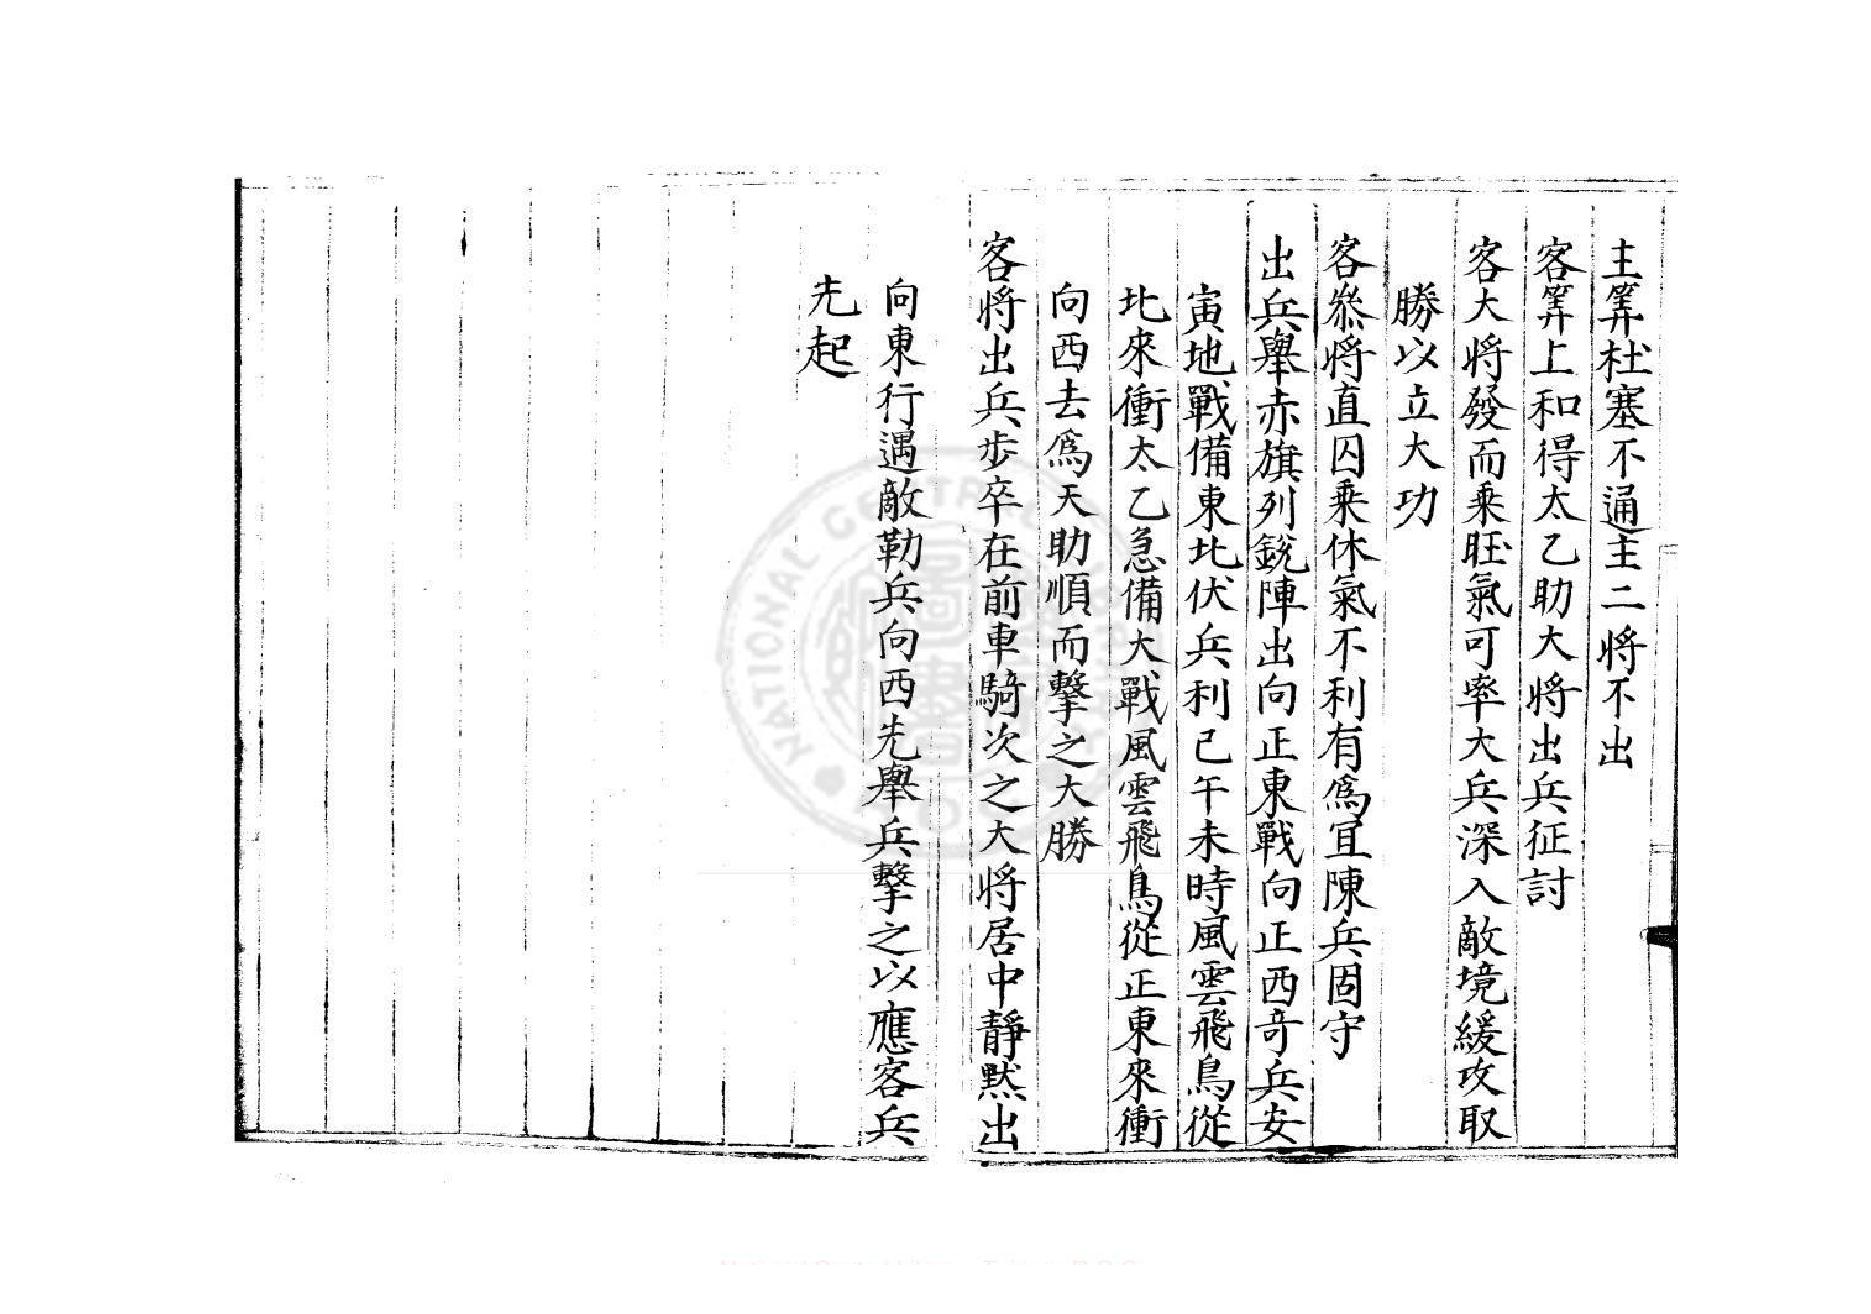 主筭杜塞不通主二将不出
客筭上和得太乙助大将出兵征討
客大将發而乗旺氣可率大兵深入敵境緩攻取
勝以立大功
客叅将直囚乗休氣不利有爲宜陳兵固守
出兵舉赤旗列銳陣出向正東戰向正西竒兵安
寅地戰備東北伏兵利已午未時風雲飛鳥從
北來衝太乙急備大戰風雲飛鳥從正東來衝
向西去爲天助順而擊之大勝
客将出兵步卒在前車騎次之大将居中靜黙出
向東行遇敵勒兵向西先舉兵擊之以應客兵
先起
NATIONAL CENTRAL